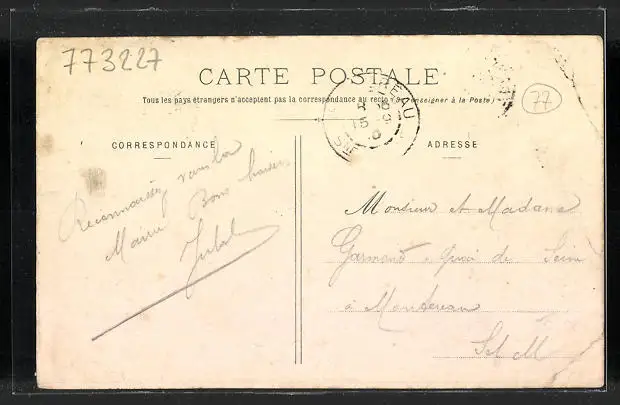 773227
CARTE POSTALE
Tous les pays étrangers n'acceptent pas la correspondance au recto (se renseigner à la Poste)
77
CORRESPONDANCE
ADRESSE
Reconnaissez vous la
Mairie Bons baisers
Monsieur et Madame
Garmont quai de Seine
à Montereau
S et M